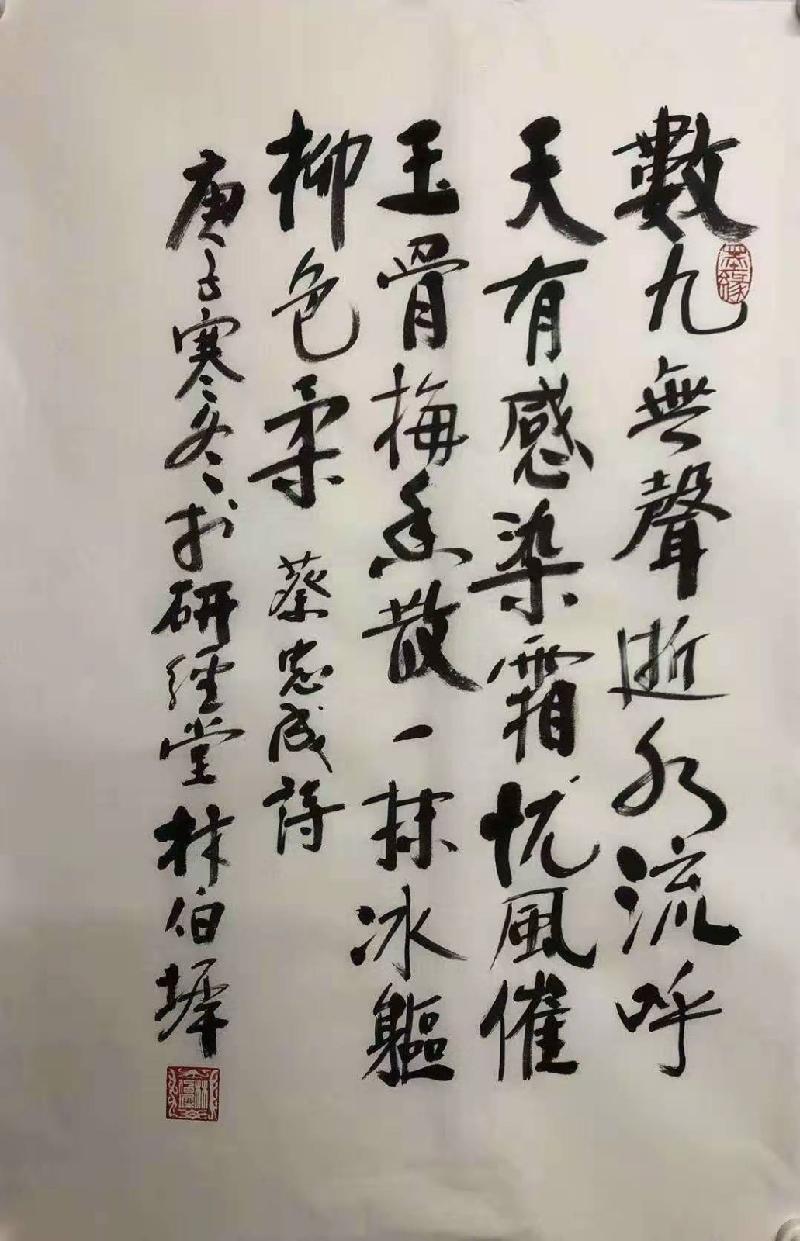 數九無聲逝水流呼
天有感染霜忧風催
玉骨梅香散一抹冰軀
柳色柔 蔡忠成詩
庚子寒冬於研經堂林伯墀
墨缘